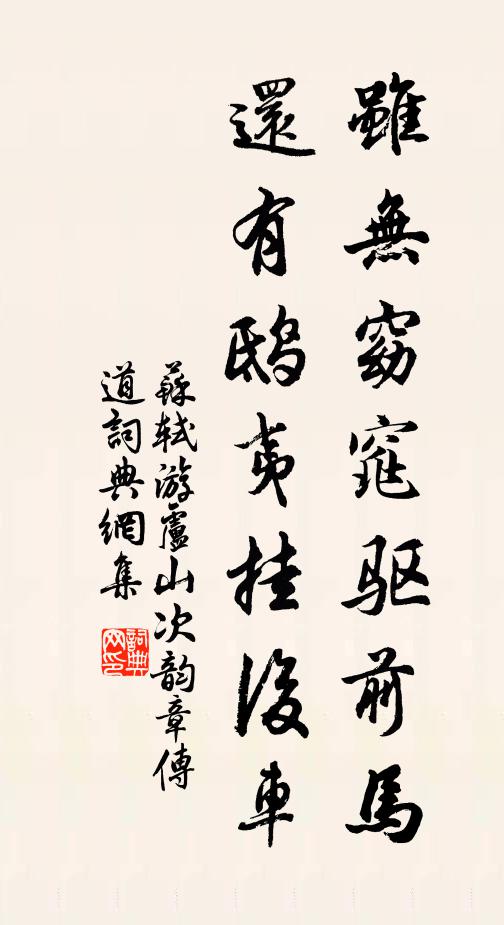 雖無窈窕驱前馬
還有鴟夷挂後車
蘇軾游廬山次韵章傳
道詞典網集
詞典
网印